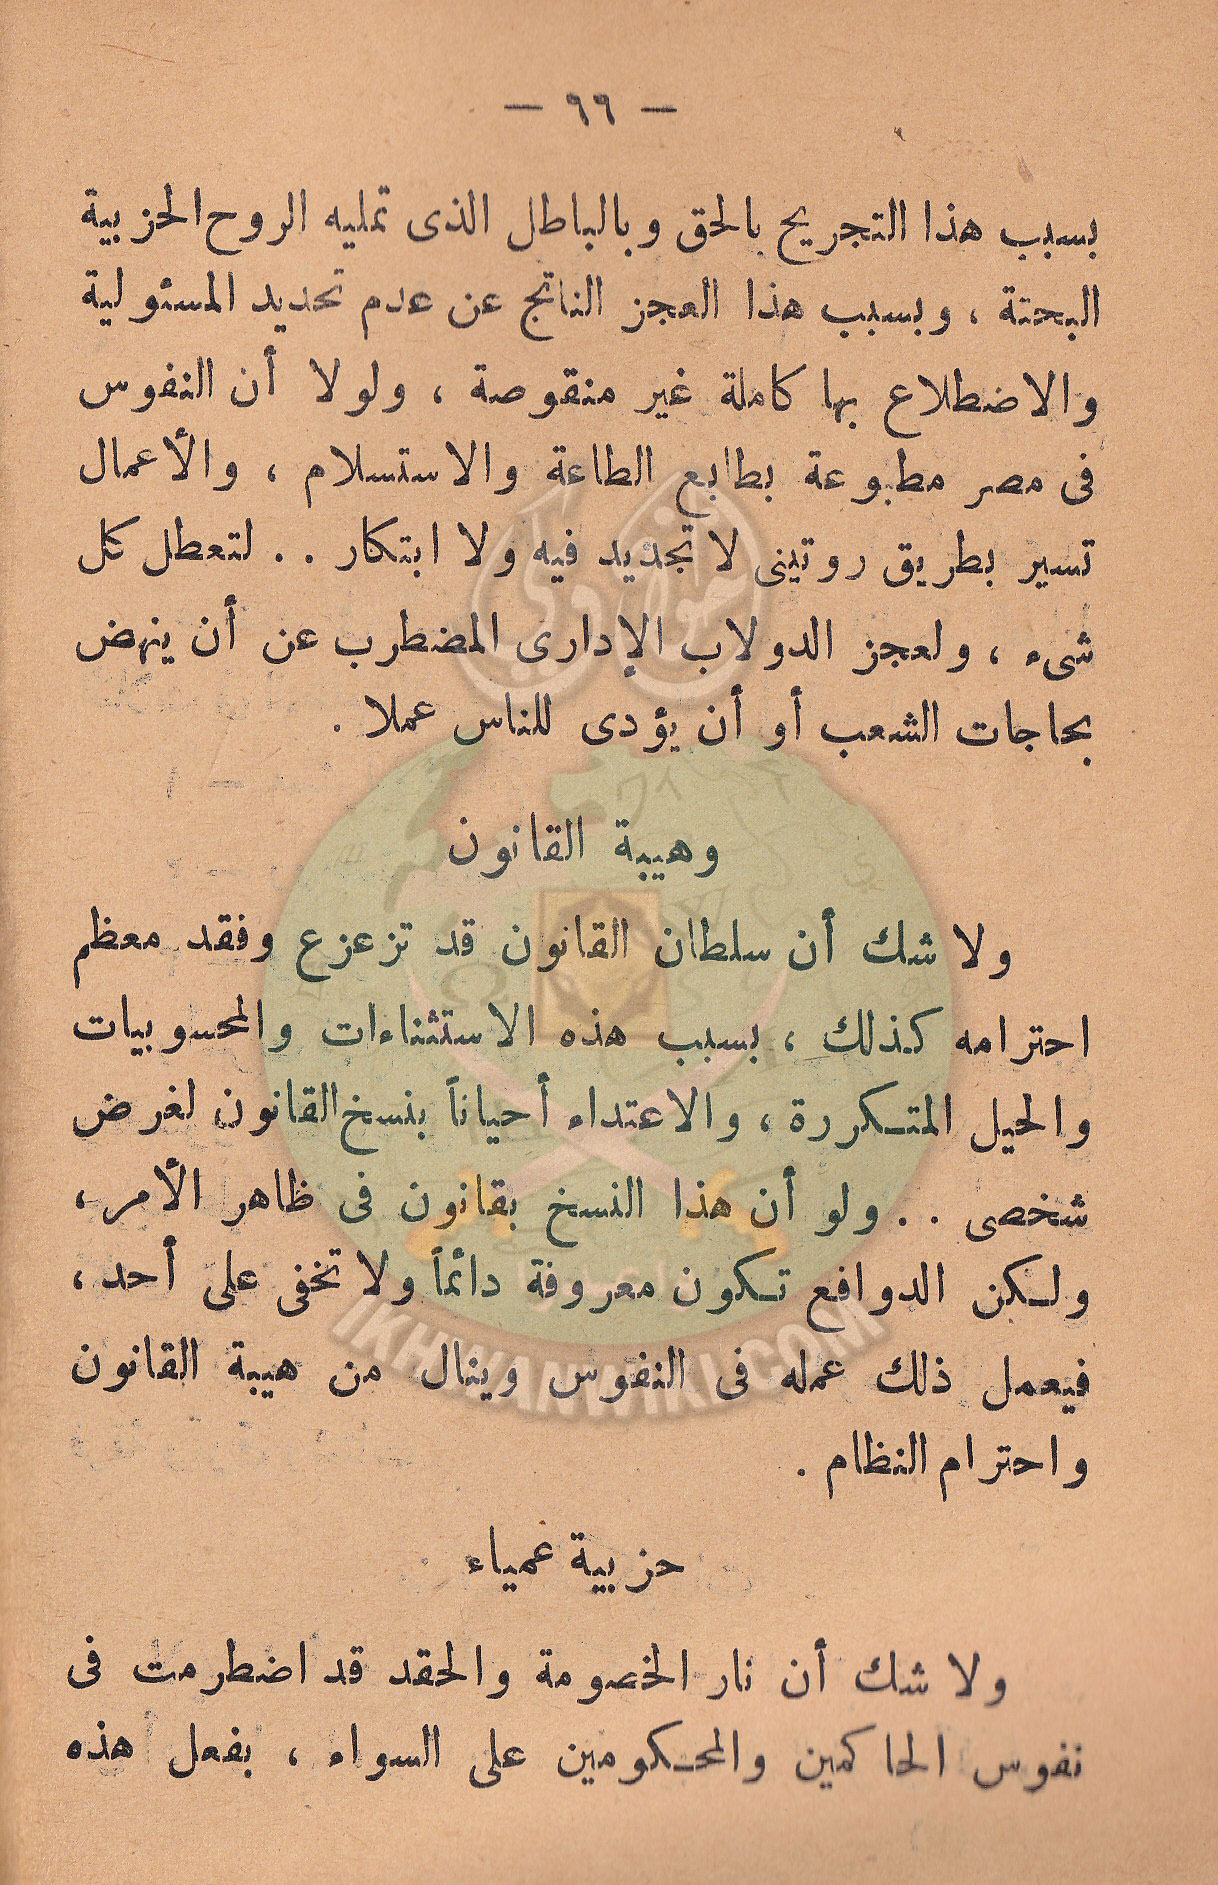 — ٦٩ —
بسبب هذا التجريح بالحق وبالباطل الذى تمليه الروح الحزبية
البحتة ، وبسبب هذا العجز الناتج عن عدم تحديد المسئولية
والاضطلاع بها كاملة غير منقوصة ، ولولا أن النفوس
فى مصر مطبوعة بطابع الطاعة والاستسلام ، والأعمال
تسير بطريق روتينى لا تجديد فيه ولا ابتكار . . لتعطل كل
شىء ، ولعجز الدولاب الإدارى المضطرب عن أن ينهض
بحاجات الشعب أو أن يؤدى للناس عملا .
وهيبة القانون
ولا شك أن سلطان القانون قد تزعزع وفقد معظم
احترامه كذلك ، بسبب هذه الاستثناءات والمحسوبيات
والحيل المتكررة ، والاعتداء أحياناً بنسخ القانون لغرض
شخصى . . ولو أن هذا النسخ بقانون فى ظاهر الأمر ،
ولكن الدوافع تكون معروفة دائماً ولا تخفى على أحد ،
فيعمل ذلك عمله فى النفوس وينال من هيبة القانون
واحترام النظام .
حزبية عمياء
ولا شك أن نار الخصومة والحقد قد اضطرمت فى
نفوس الحاكمين والمحكومين على السواء ، بفعل هذه
إخوان ويكي
IKHWANWIKI.COM